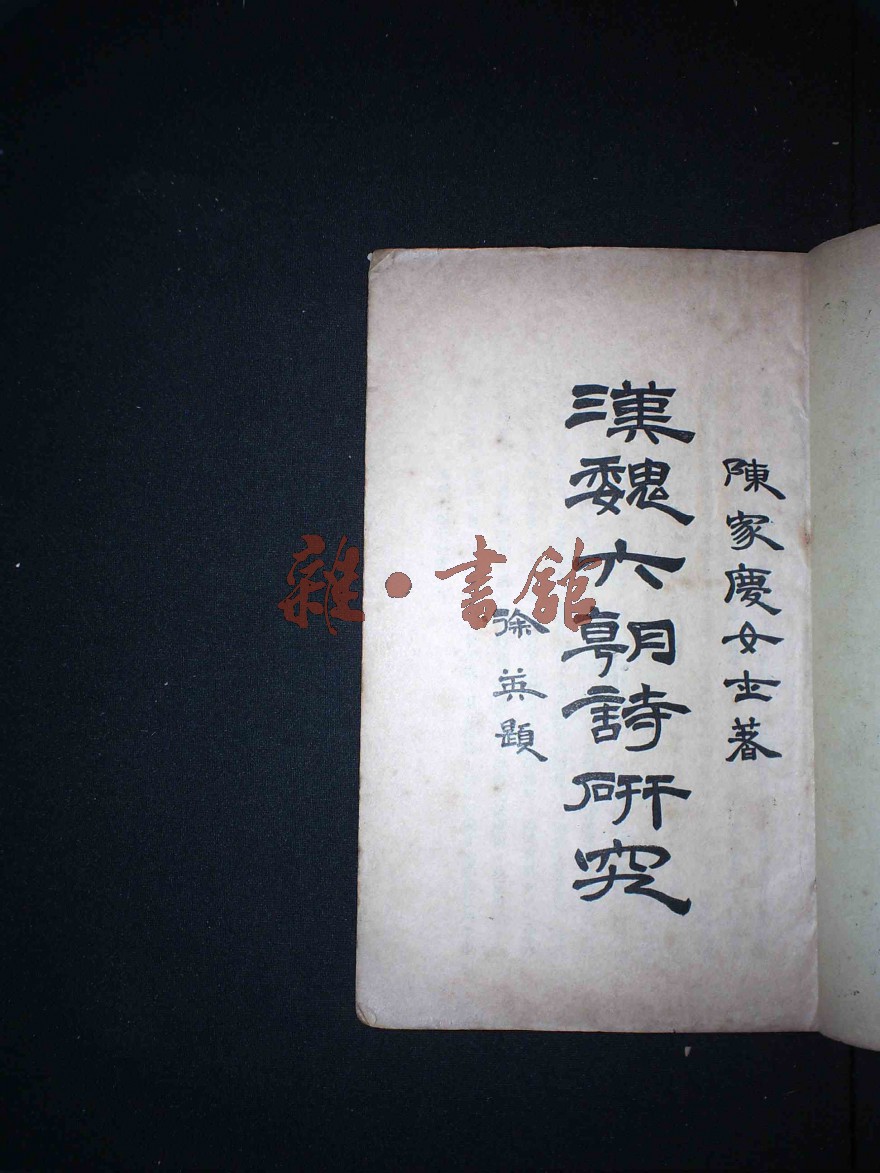 陳家慶女士著
漢魏六朝詩研究
徐英題
雜·書館